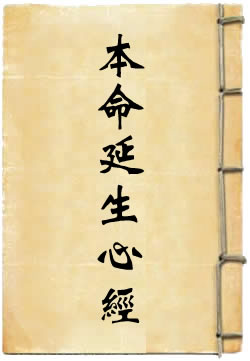 本命延生心經